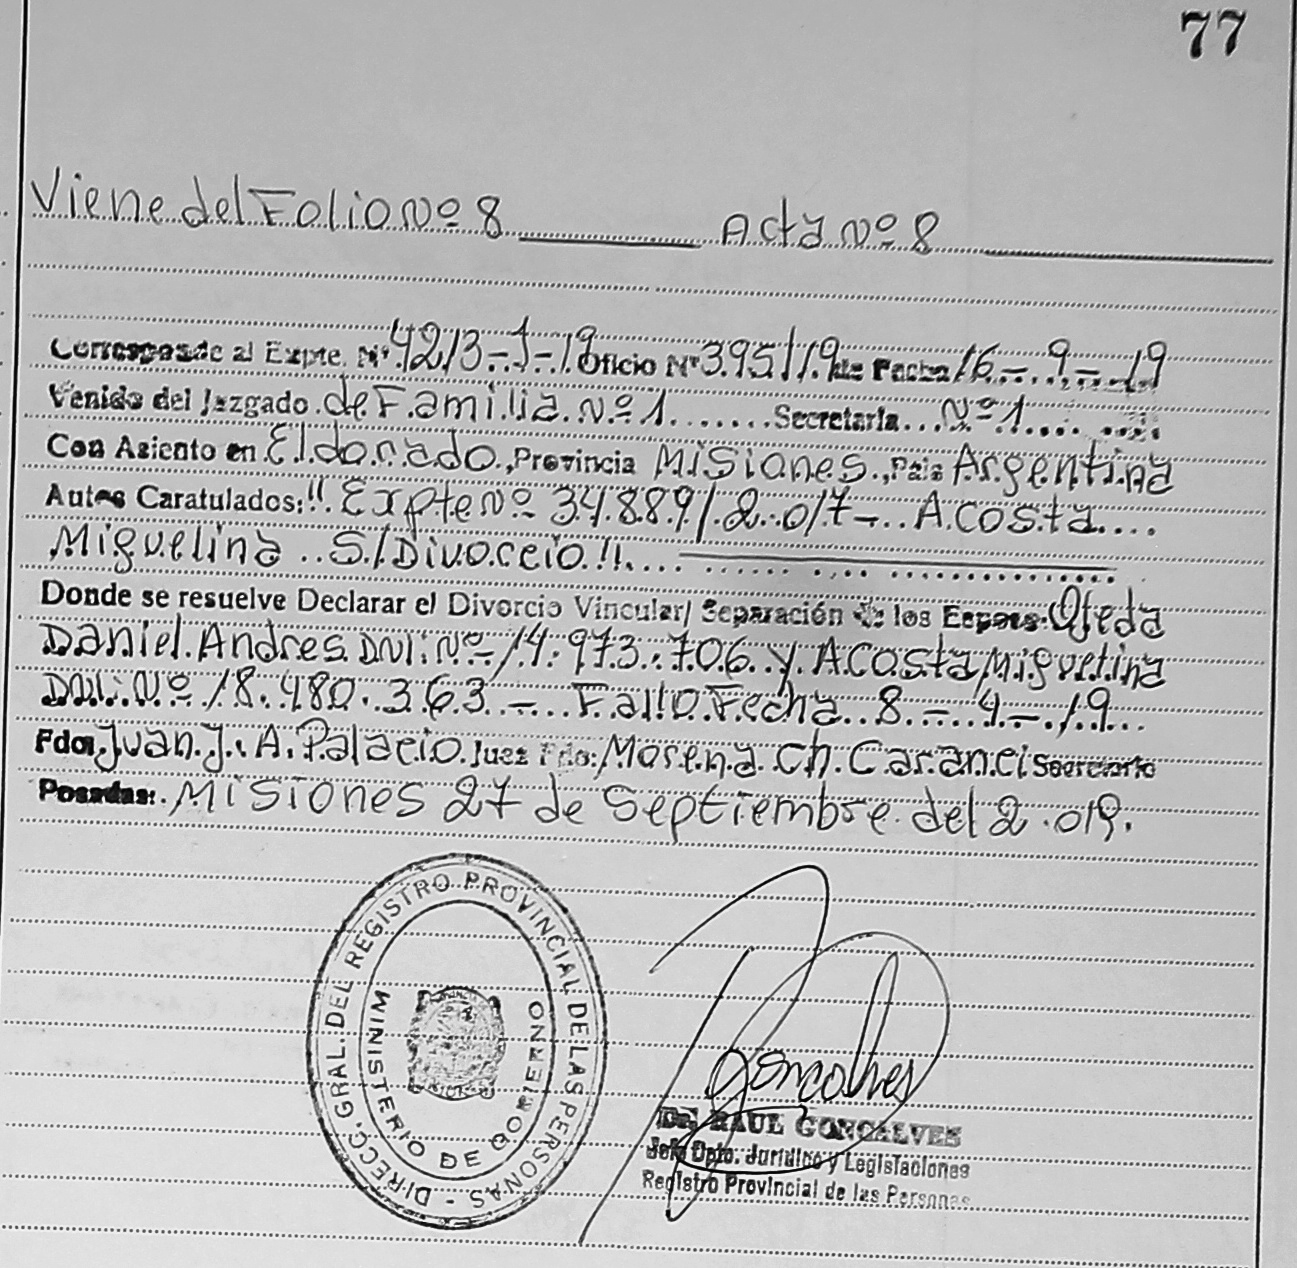 77
Viene del Folio Nº 8 Acta Nº 8
Corresponde al Expte. Nº 4213-J-19 Oficio Nº 395/19 de Fecha 16-9-19
Venido del Juzgado de Familia Nº 1 Secretaria Nº 1
Con Asiento en Eldorado, Provincia Misiones, Pais Argentina
Autos Caratulados: "Expte Nº 34.889/2.017- Acosta
Miguelina S/Divorcio"
Donde se resuelve Declarar el Divorcio Vincular/ Separación de los Esposos: Ojeda
Daniel Andres DNI. Nº 14.973.706 y Acosta Miguelina
DNI. Nº 18.480.363 - Fallo Fecha 8-4-19
Fdo: Juan J. A. Palacio Juez Fdo: Morena Ch. Secretario
Posadas: Misiones 27 de Septiembre del 2.019.
DIRECC. GRAL. DEL REGISTRO PROVINCIAL DE LAS PERSONAS -
MINISTERIO DE GOBIERNO
Goncalves
Dr. RAUL GONCALVES
Jefe Dpto. Jurídico y Legislaciones
Registro Provincial de las Personas